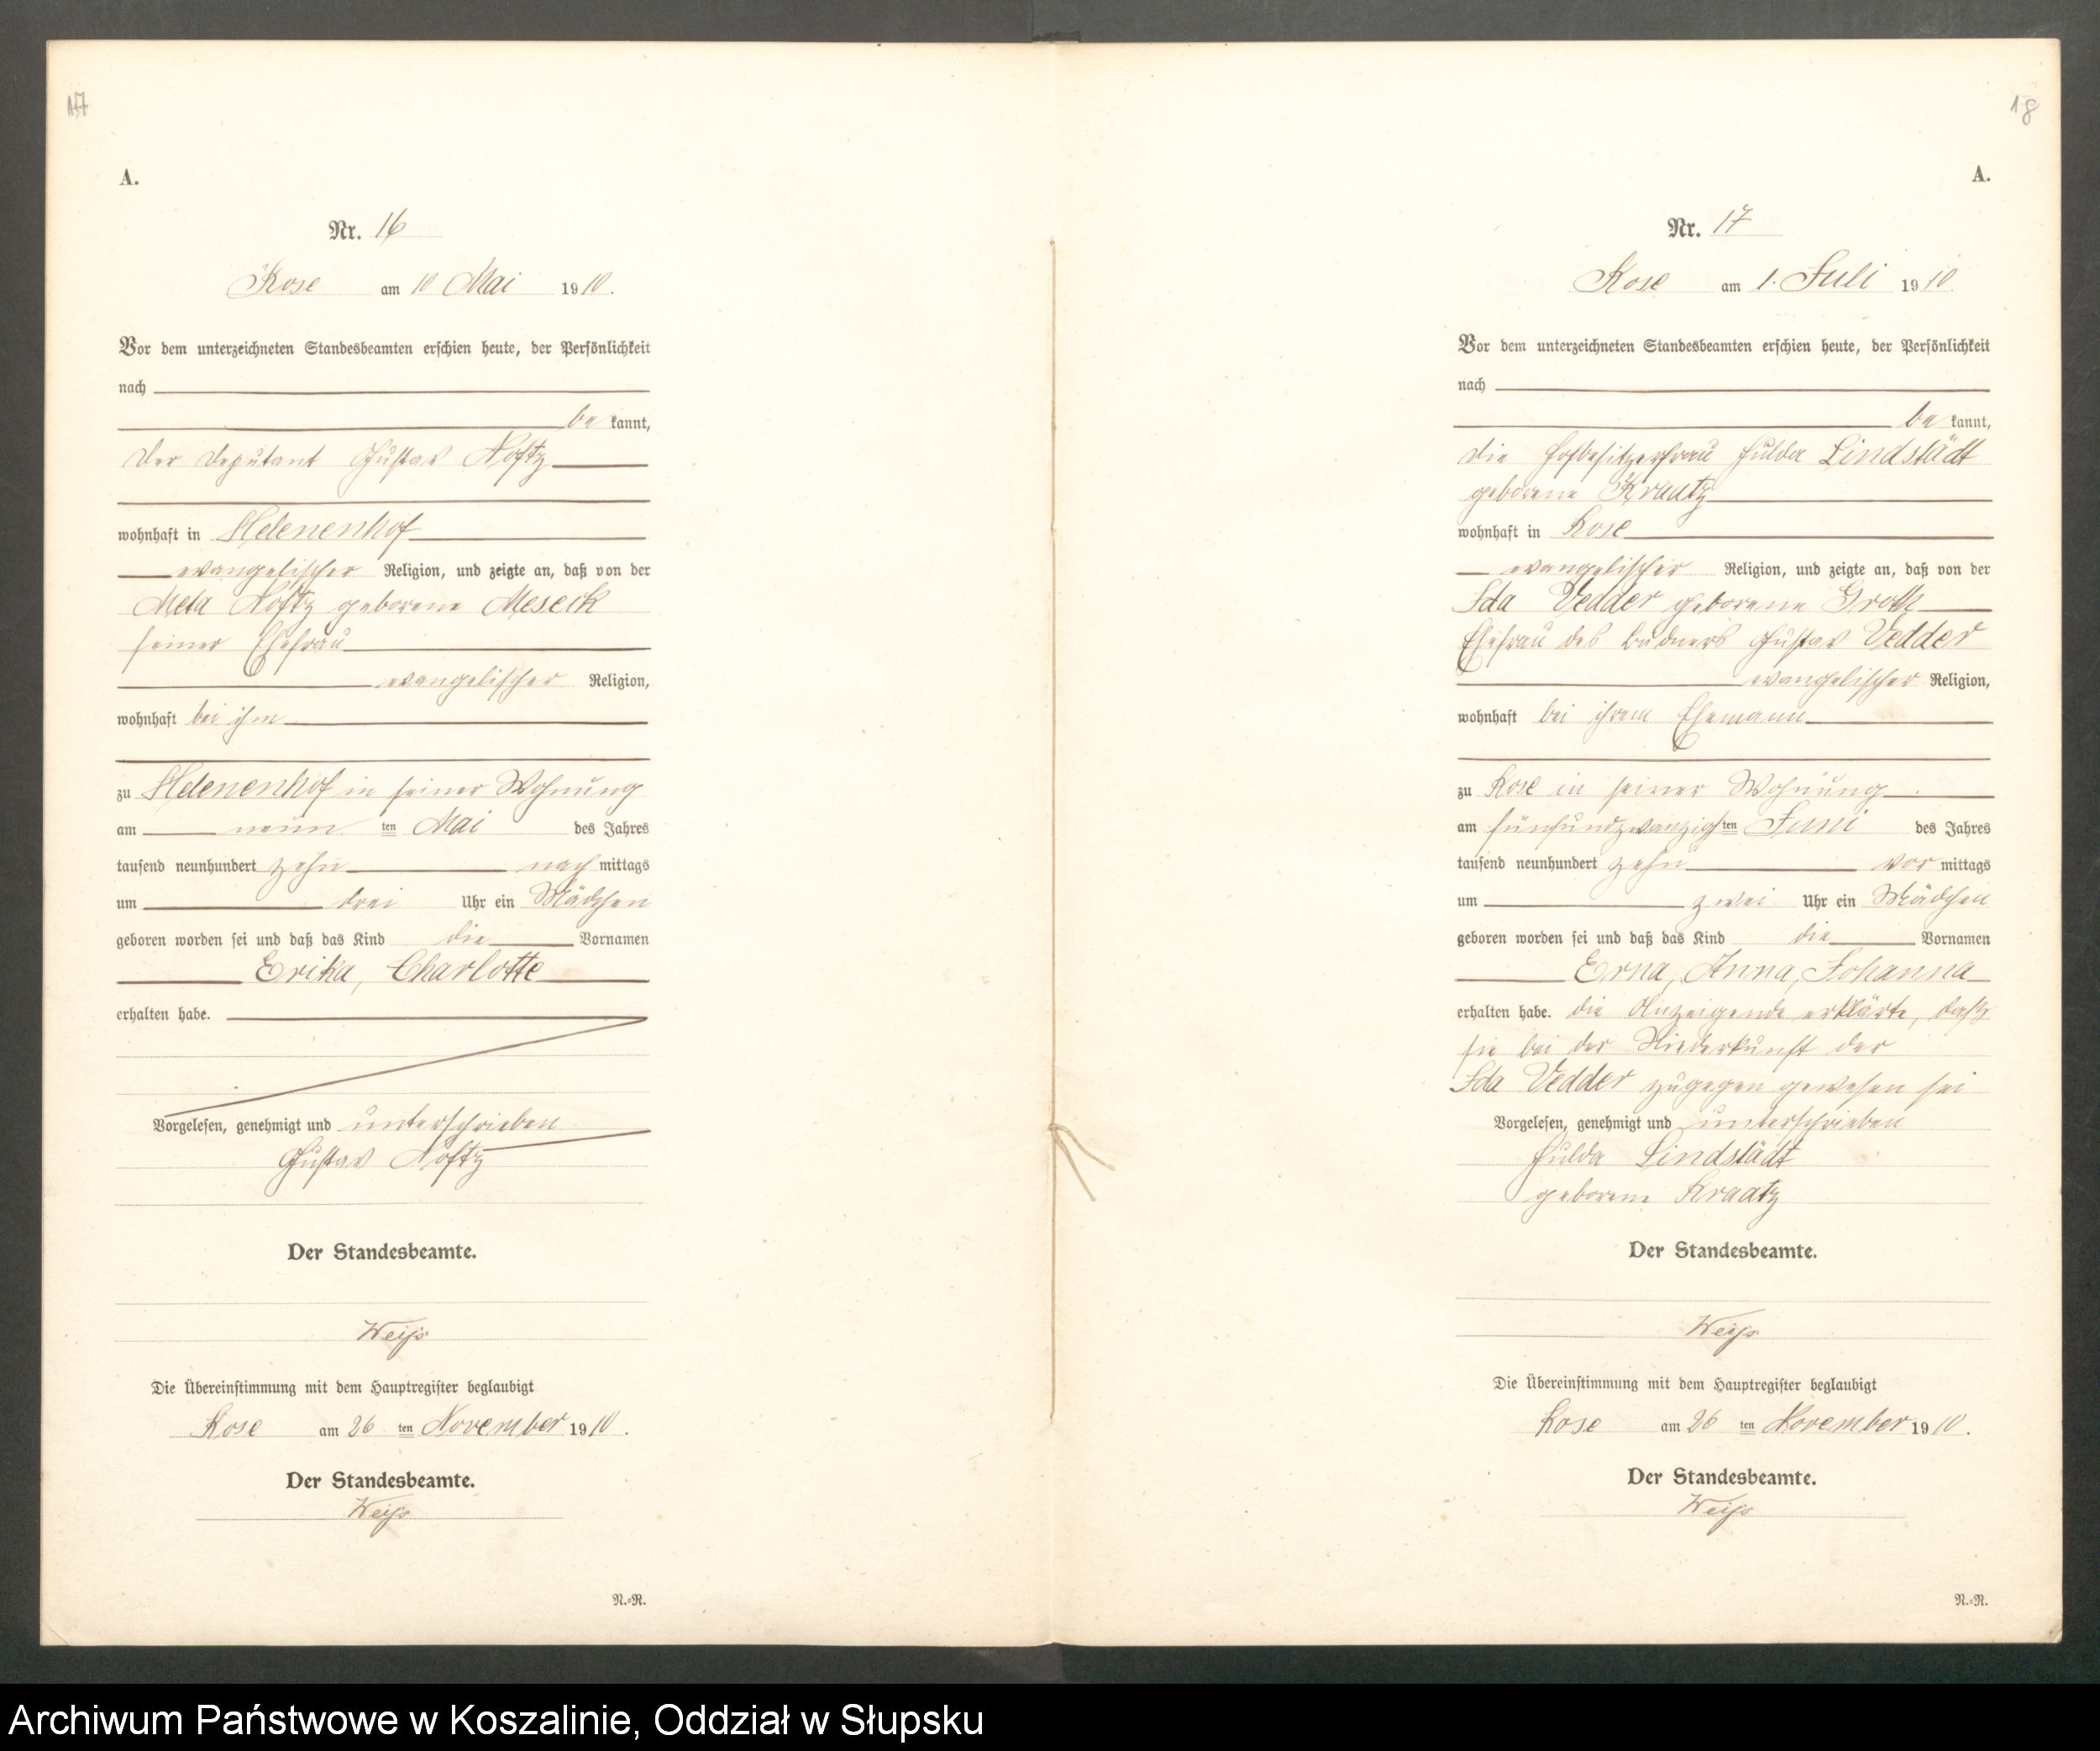 17
A.
Nr. 16
Rose am 10 Mai 1910.
Vor dem unterzeichneten Standesbeamten erschien heute, der Persönlichkeit
nach
be kannt,
der Deputant Gustav Noftz
wohnhaft in Helenenhof
evangelischer Religion, und zeigte an, daß von der
Meta Noftz geborene Meseck
seiner Ehefrau
evangelischer Religion,
wohnhaft bei ihm
zu Helenenhof in seiner Wohnung
am neun ten Mai des Jahres
tausend neunhundert zehn nach mittags
um drei Uhr ein Mädchen
geboren worden sei und daß das Kind die Vornamen
Erika, Charlotte
erhalten habe.
Vorgelesen, genehmigt und unterschrieben
Gustav Noftz
Der Standesbeamte.
Weiß
Die Übereinstimmung mit dem Hauptregister beglaubigt
Rose am 26 ten November 1910.
Der Standesbeamte.
Weiß
N.=R.
18
A.
Nr. 17
Rose am 1. Juli 1910.
Vor dem unterzeichneten Standesbeamten erschien heute, der Persönlichkeit
nach
be kannt,
die Hofbesitzerfrau Hulda Lindstädt
geborene Kraatz
wohnhaft in Rose
evangelischer Religion, und zeigte an, daß von der
Ida Vedder geborene Groth
Ehefrau des Büdners Gustav Vedder
evangelischer Religion,
wohnhaft bei ihrem Ehemann
zu Rose in seiner Wohnung
am fünfundzwanzigsten Juni des Jahres
tausend neunhundert zehn vor mittags
um zwei Uhr ein Mädchen
geboren worden sei und daß das Kind die Vornamen
Erna, Anna, Johanna
erhalten habe. die Anzeigende erklärte, daß
sie bei der Niederkunft der
Ida Vedder zugegen gewesen sei
Vorgelesen, genehmigt und unterschrieben
Hulda Lindstädt
geborene Kraatz
Der Standesbeamte.
Weiß
Die Übereinstimmung mit dem Hauptregister beglaubigt
Rose am 26 ten November 1910.
Der Standesbeamte.
Weiß
N.=R.
Archiwum Państwowe w Koszalinie, Oddział w Słupsku